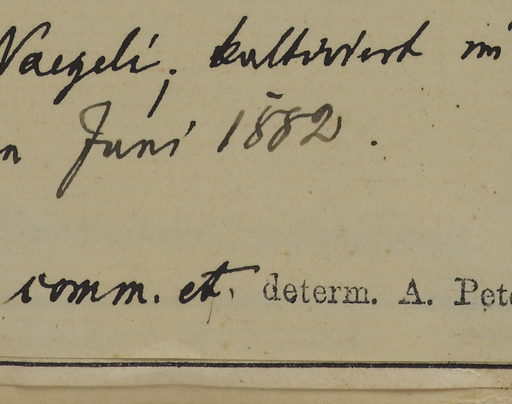 Naegeli; kultiviert im
n Juni 1882.
comm. et. determ. A. Pete